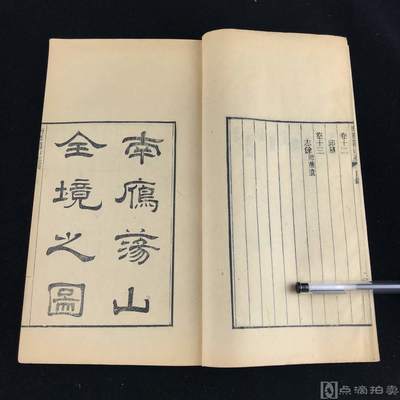 南鴈蕩山
全境之圖
卷十二
卷十三
志餘
点滴拍卖